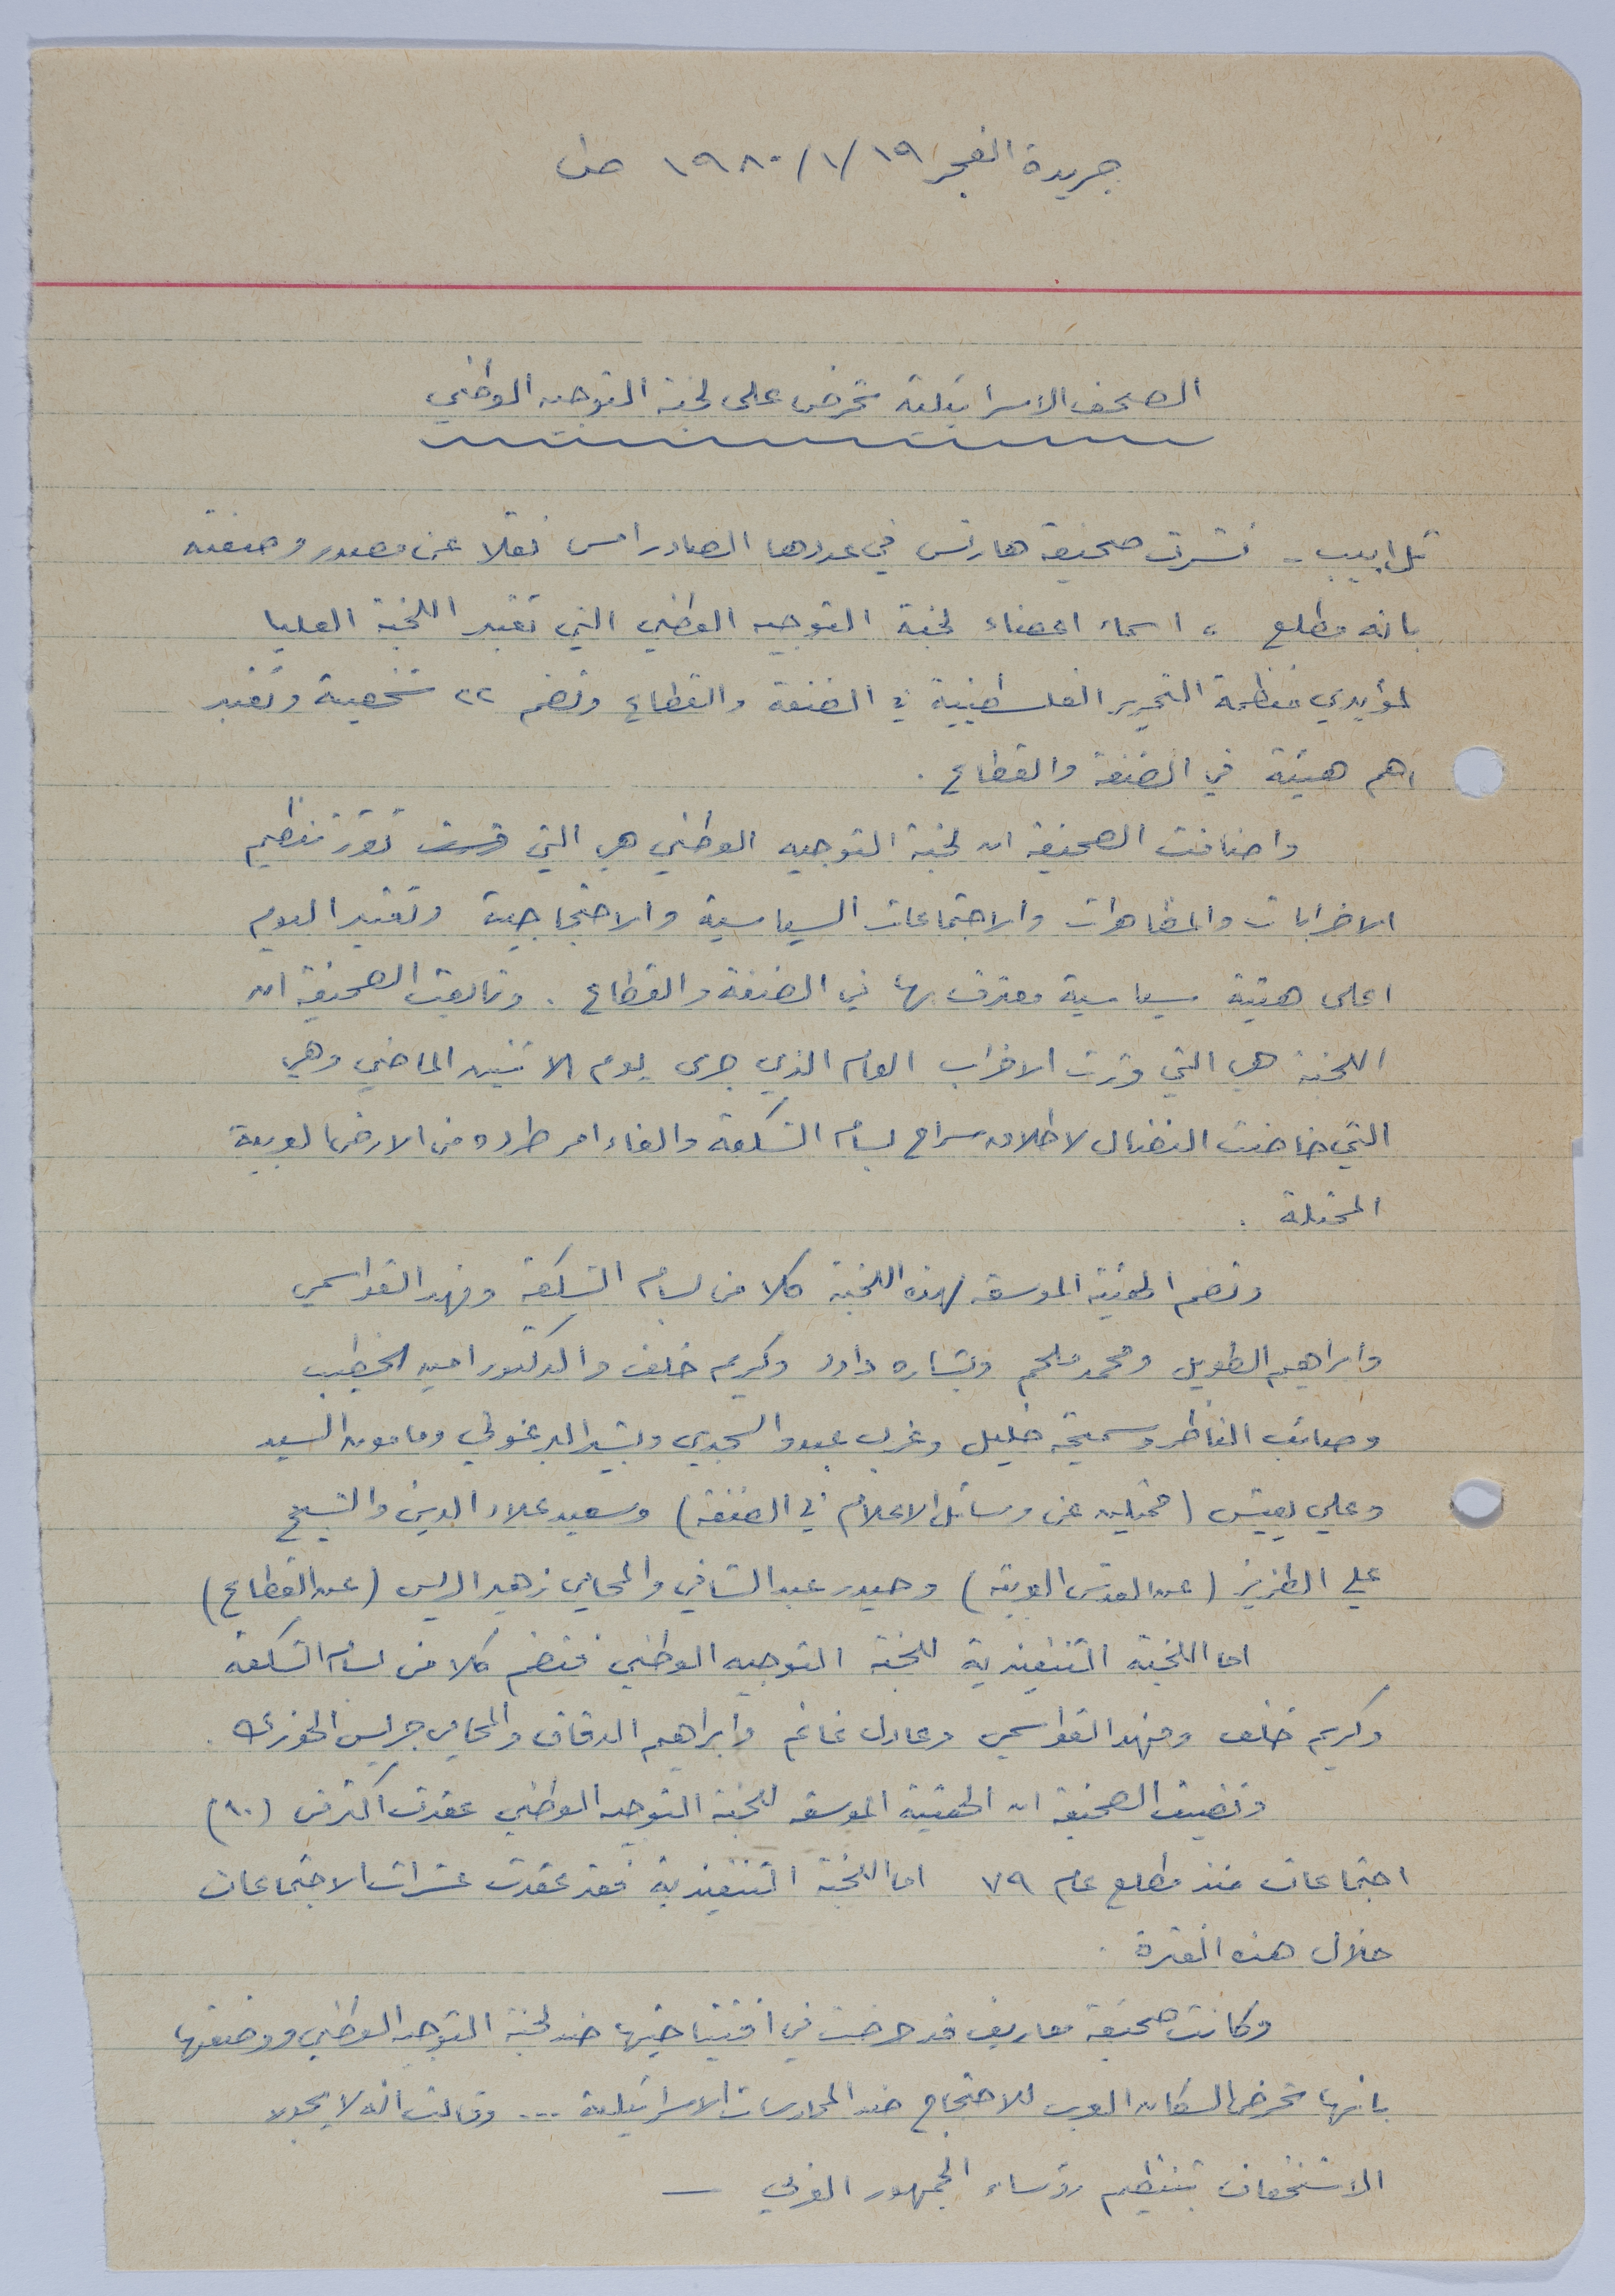 جريدة الفجر ١٩/١/١٩٨٠ ص١
الصحف الاسرائيلية تحرض على لجنة التوجيه الوطني
تل ابيب - نشرت صحيفة هارتس في عددها الصادر امس نقلا عن مصدر وصفته
بانه مطلع ، اسماء اعضاء لجنة التوجيه الوطني التي تعتبر اللجنة العليا
لمؤيدي منظمة التحرير الفلسطينية في الضفة والقطاع وتضم ٢٢ شخصية وتعتبر
اهم هيئة في الضفة والقطاع .
واضافت الصحيفة ان لجنة التوجيه الوطني هي التي تقرر تنظيم
الاضرابات والمظاهرات والاجتماعات السياسية والاحتجاجية وتعتبر اليوم
اعلى هيئة سياسية معترف بها في الضفة والقطاع . وتابعت الصحيفة ان
اللجنة هي التي قررت الاضراب العام الذي جرى يوم الاثنين الماضي وهي
التي خاضت النضال لاطلاق سراح بسام الشكعة والغاء امر طرده من الارض العربية
المحتلة .
وتضم الهيئة الموسعة لهذه اللجنة كلا من بسام الشكعة وفهد القواسمي
وابراهيم الطويل ومحمد ملحم وبشاره داود وكريم خلف والدكتور امين الخطيب
وصائب الناظر وسميحة خليل وعزمي عبد والسجدي وبشير البرغوثي ومامون السيد
وعلي يعيش (ممثلين عن وسائل الاعلام في الضفة) وسعيد علاء الدين والشيخ
علي الطزيز (عن القدس العربية) وحيدر عبد الشافي والمحامي زهير الريس (عن القطاع)
اما اللجنة التنفيذية للجنة التوجيه الوطني فتضم كلا من بسام الشكعة
وكريم خلف وفهد القواسمي وعادل غانم وابراهيم الدقاق والمحامي جريس الخوري .
وتضيف الصحيفة ان الهيئة الموسعة للجنة التوجيه الوطني عقدت اكثر من (١٠)
اجتماعات منذ مطلع عام ٧٩ اما اللجنة التنفيذية فقد عقدت عشرات الاجتماعات
خلال هذه الفترة .
وكانت صحيفة معاريف قد حرضت في افتتاحيتها ضد لجنة التوجيه الوطني ووصفتها
بانها تحرض السكان العرب للاحتجاج ضد الممارسات الاسرائيلية ... وقالت انه لا يجوز
الاستخفاف بتنظيم رؤساء الجمهور العربي —